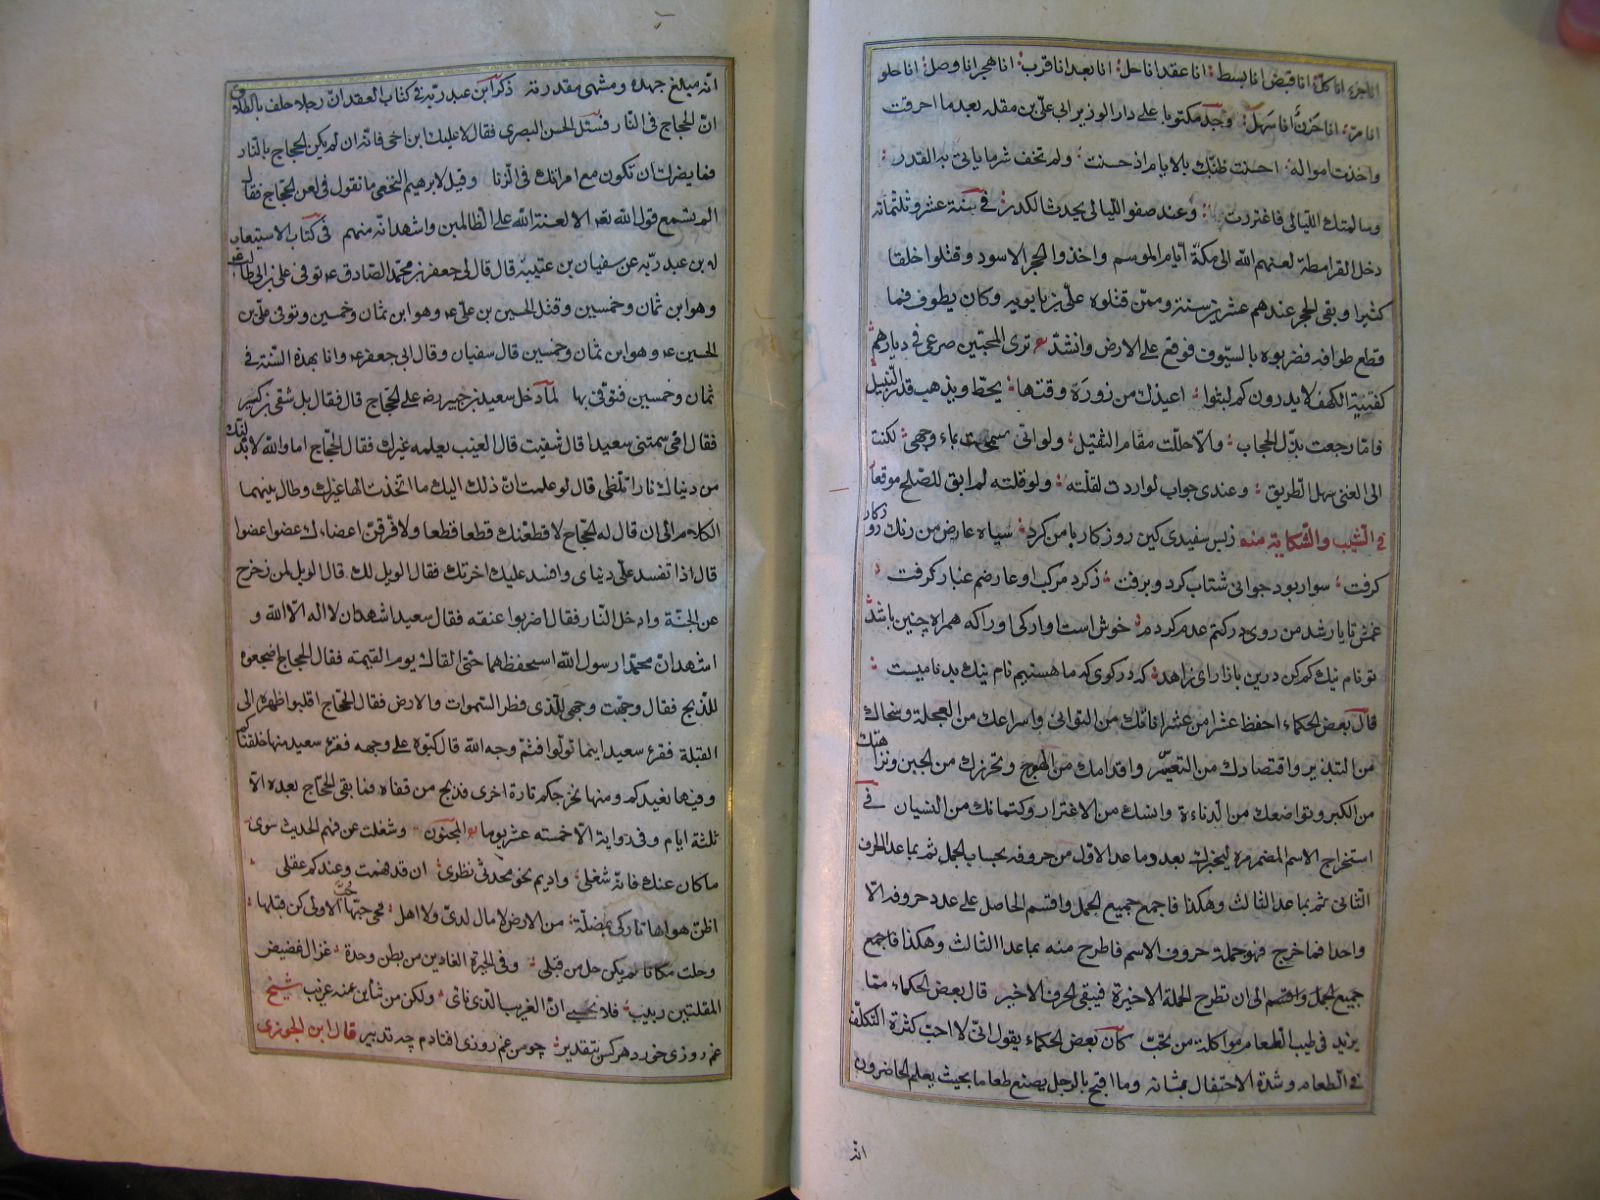 انا جزء انا كل انا قبض انا بسط انا عقد انا حل انا بعد انا قرب انا هجر انا وصل انا حلو
انا مر انا حزن انا سهل وجد مكتوبا على دار الوزير ابي علي بن مقله بعد ما احرقت
واخذت امواله احسنت ظنك بالايام اذ حسنت ولم تخف شر ما ياتي به القدر
وسالمتك الليالى فاغتررت بها وعند صفو الليالى يحدث الكدر في سنة عشر وثلثمائه
دخل القرامطة لعنهم الله الى مكة أيام الموسم واخذوا الحجر الاسود وقتلوا خلقا
كثيرا وبقى الحجر عندهم عشرين سنة وممن قتلوه على بن بابويه وكان يطوف فما
قطع طوافه فضربوه بالسيوف فوقع على الارض وانشد ع ترى المحبين صرعى في ديارهم
كفتية الكهف لا يدرون كم لبثوا اعيذك من زورة وقتها يحط ويذهب قدر النبيل
فاما رجعت بذل الحجاب والا حللت مقام الثقيل ولو اني سمحت بماء وجهي لكنت
الى الغنى سهل الطريق وعندى جواب لو اردت لقلته ولو قلته لم ابق للصلح موقعا
في الشيب والشكاية منه زبس سفيدى كين روزكار با من كرد سياه عارض من رنك روزكار
كرفت سوار بود جوانى شتاب كرد وبرفت ز كرد مركب او عارضم غبار كرفت
غمش تا يار شد من روى در كتم عدم كردم خوش است اواركى اورا كه همراه چنين باشد
تو نام نيك كم كن درين بازار اى زاهد كه در كوى كه ما هستيم نام نيك بدناميست
قال بعض الحكماء احفظ عشرا من عشر اناتك من التوانى واسراعك من العجلة وسخاك
من التبذير واقتصادك من التعسير واقدامك من الهوج وتحرزك من الجبن ونزاهتك
من الكبر وتواضعك من الدناءة وانسك من الاغترار وكتمانك من النسيان في
استخراج الاسم المضمر مره ليخبرك بعدد ما عدا الاول من حروفه بحساب الجمل ثم بما عدا الحرف
الثانى ثم بما عدا الثالث وهكذا فاجمع جميع الجمل واقسم الحاصل على عدد حروفه الا
واحدا فما خرج فهو جملة حروف الاسم فاطرح منه بما عدا الثالث وهكذا فاجمع
جميع الجمل واقسم الى ان تطرح الجملة الاخيرة فيبقى الحرف الاخير قال بعض الحكماء مما
يزيد في طيب الطعام مواكلة من تحب كان بعض الحكماء يقول انى لا احب كثرة التكلف
في الطعام وشدة الاحتفال بشانه وما اقبح بالرجل يصنع طعاما بحيث يعلم الحاضرون
انه
انه مبلغ جهده ومنتهى مقدرته ذكر ابن عبد ربه في كتاب العقد ان رجلا حلف بالطلاق
ان الحجاج فى النار فسئل الحسن البصرى فقال لا عليك ابن اخى فانه ان لم يكن الحجاج بالنار
فما يضرك ان تكون مع امراتك فى الزنا وقيل لابرهيم النخعى ما تقول فى لعن الحجاج فقال
الم تسمع قول الله تعـ الا لعنة الله على الظالمين واشهد انه منهم فى كتاب الاستيعاب
له بن عبد ربه عن سفيان بن عتيبة قال قال لى جعفر بن محمد الصادق ع توفى على بن ابى طالب ع
وهو ابن ثمان وخمسين وقتل الحسين بن على ع وهو ابن ثمان وخمسين وتوفى على بن
الحسين ع وهو ابن ثمان وخمسين قال سفيان وقال ابى جعفر ع وانا بهذه السنة فى
ثمان وخمسين فتوفى بها لما دخل سعيد بن جبير رضه على الحجاج قال فقال بل شقى بن كسير
فقال امى سمتنى سعيدا قال شقيت قال الغيب يعلمه غيرك فقال الحجاج اما والله لابدلنك
من دنياك نارا تلظى قال لو علمت ان ذلك اليك ما اتخذت الها غيرك وطال بينهما
الكلام الى ان قال له الحجاج لاقطعنك قطعا قطعا ولافرقن اعضاءك عضوا عضوا
قال اذا تفسد على دنياى وافسد عليك اخرتك فقال الويل لك قال الويل لمن زحزح
عن الجنة وادخل النار فقال اضربوا عنقه فقال سعيد اشهد ان لا اله الا الله و
اشهد ان محمدا رسول الله استحفظهما حتى القاك يوم القيمة فقال الحجاج اضجعوه
للذبح فقال وجهت وجهى للذى فطر السموات والارض فقال الحجاج اقلبوا ظهره الى
القبلة فقرء سعيد اينما تولوا فثم وجه الله قال كبوه على وجهه فقرء سعيد منها خلقناكم
وفيها نعيدكم ومنها نخرجكم تارة اخرى فذبح من قفاه فما بقى الحجاج بعده الا
ثلثة ايام وفى رواية الا خمسه عشر يوما المجنون وشغلت عن فهم الحديث سوى
ما كان عنك فانه شغلى واديم نحو محدثى نظرى ان قد فهمت وعندكم عقلى
اظن هواها تاركى بمضلة من الارض لا مال لدى ولا اهل محى حبها حب الاولى كن قبلها
وحلت مكانا لم يكن حل من قبلى وفى الجيرة الغادين من بطن وحدة غزال غضيض
المقلتين ربيب فلا تحسبى ان الغريب الذى ناى ولكن من تنأين عنه غريب شيخ
غم روزى خورد هر كس بتقدير چو من غم روزى افتادم چه تدبير قال ابن الجوزى